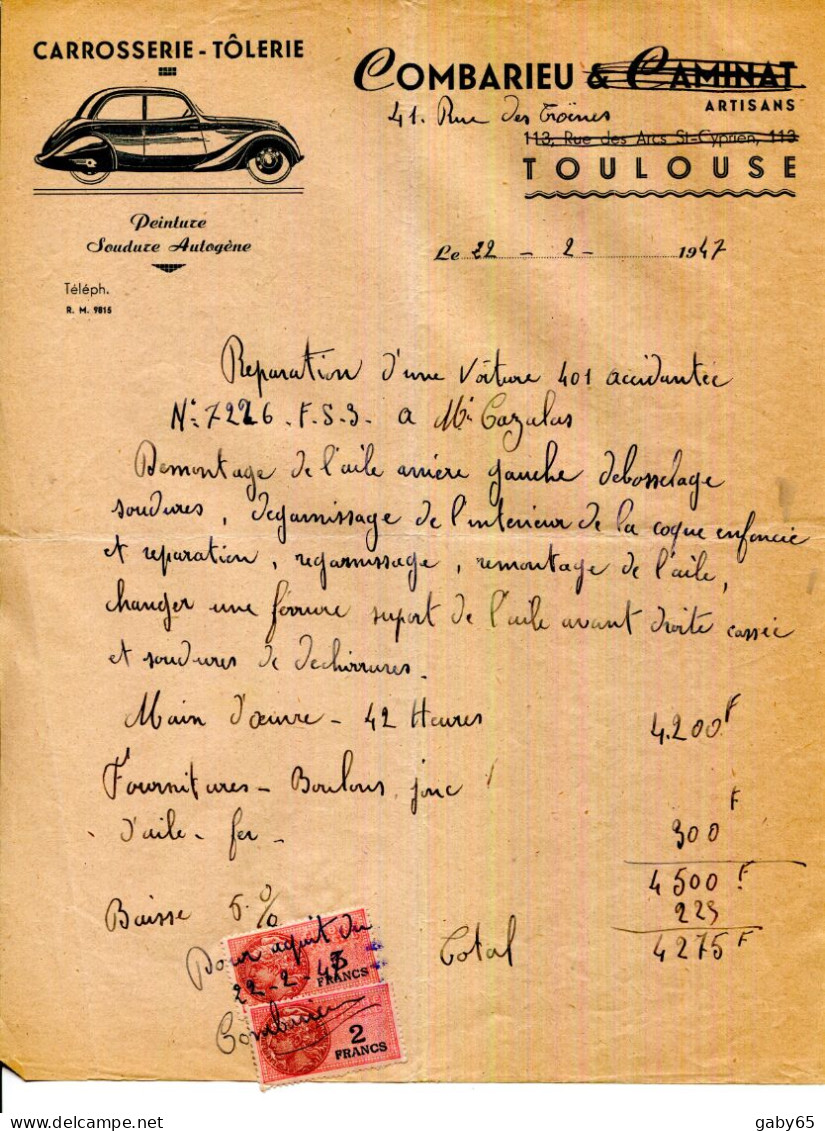 CARROSSERIE - TÔLERIE
COMBARIEU & CAMINAT
ARTISANS
41. Rue des Troènes
113, Rue des Arcs St-Cyprien, 113
TOULOUSE
Peinture
Soudure Autogène
Le 22 - 2 - 1947
Téléph.
R. M. 9815
Reparation d'une Voiture 401 accidantée
N°: 7226. F.S.3. a Mr Cazalas
Demontage de l'aile arrière gauche debosselage
soudures, degarnissage de l'interieur de la coque enfoncée
et reparation, regarnissage, remontage de l'aile,
changer une ferrure suport de l'aile avant droite cassée
et soudures de dechirrures.
Main d'œuvre - 42 Heures 4.200F
Fournitures - Boulons, jonc
d'aile - fer - 300F
4500F
Baisse 5% 225
Total 4275F
Pour aquit du
22-2-47
Combarieu
FRANCS
2
FRANCS
gaby65